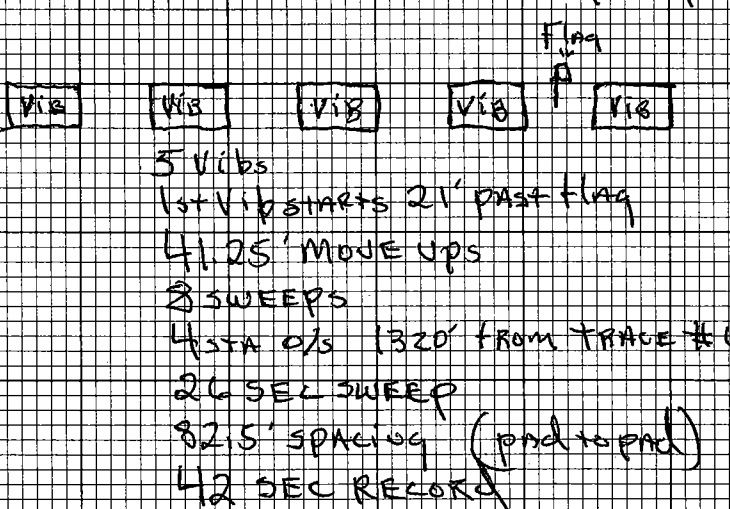 Flag
Vib Vib Vib Vib Vib
5 Vibs
1st Vib starts 21' past flag
41.25' move ups
8 sweeps
4 sta o/s 1320' from trace #
26 sec sweep
82.5' spacing (pad to pad)
42 sec record